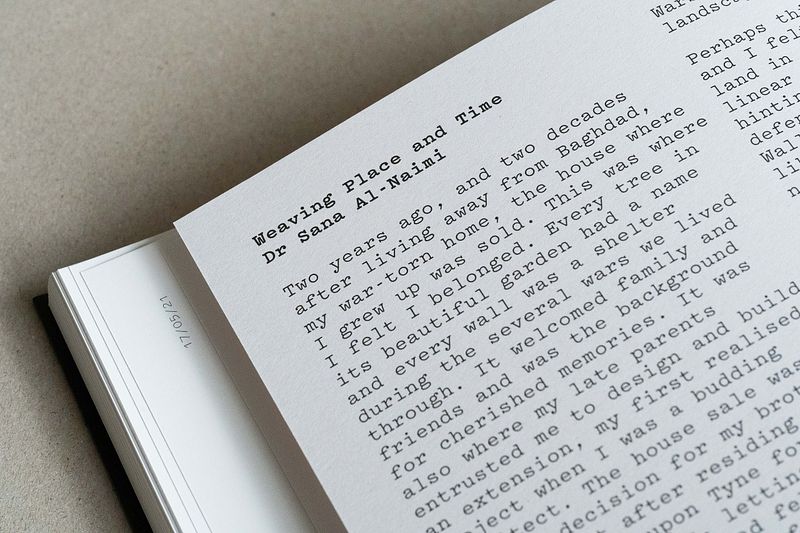 Weaving Place and Time
Dr Sana Al-Naimi
Two years ago, and two decades
after living away from Baghdad,
my war-torn home, the house where
I grew up was sold. This was where
I felt I belonged. Every tree in
its beautiful garden had a name
and every wall was a shelter
during the several wars we lived
through. It welcomed family and
friends and was the background
for cherished memories. It was
also where my late parents
entrusted me to design and build
an extension, my first realised
when I was a budding
The house sale was
decision for my
after residing
upon Tyne
letting
and
landscap
Perhaps
and I
land in
linear
17/05/21